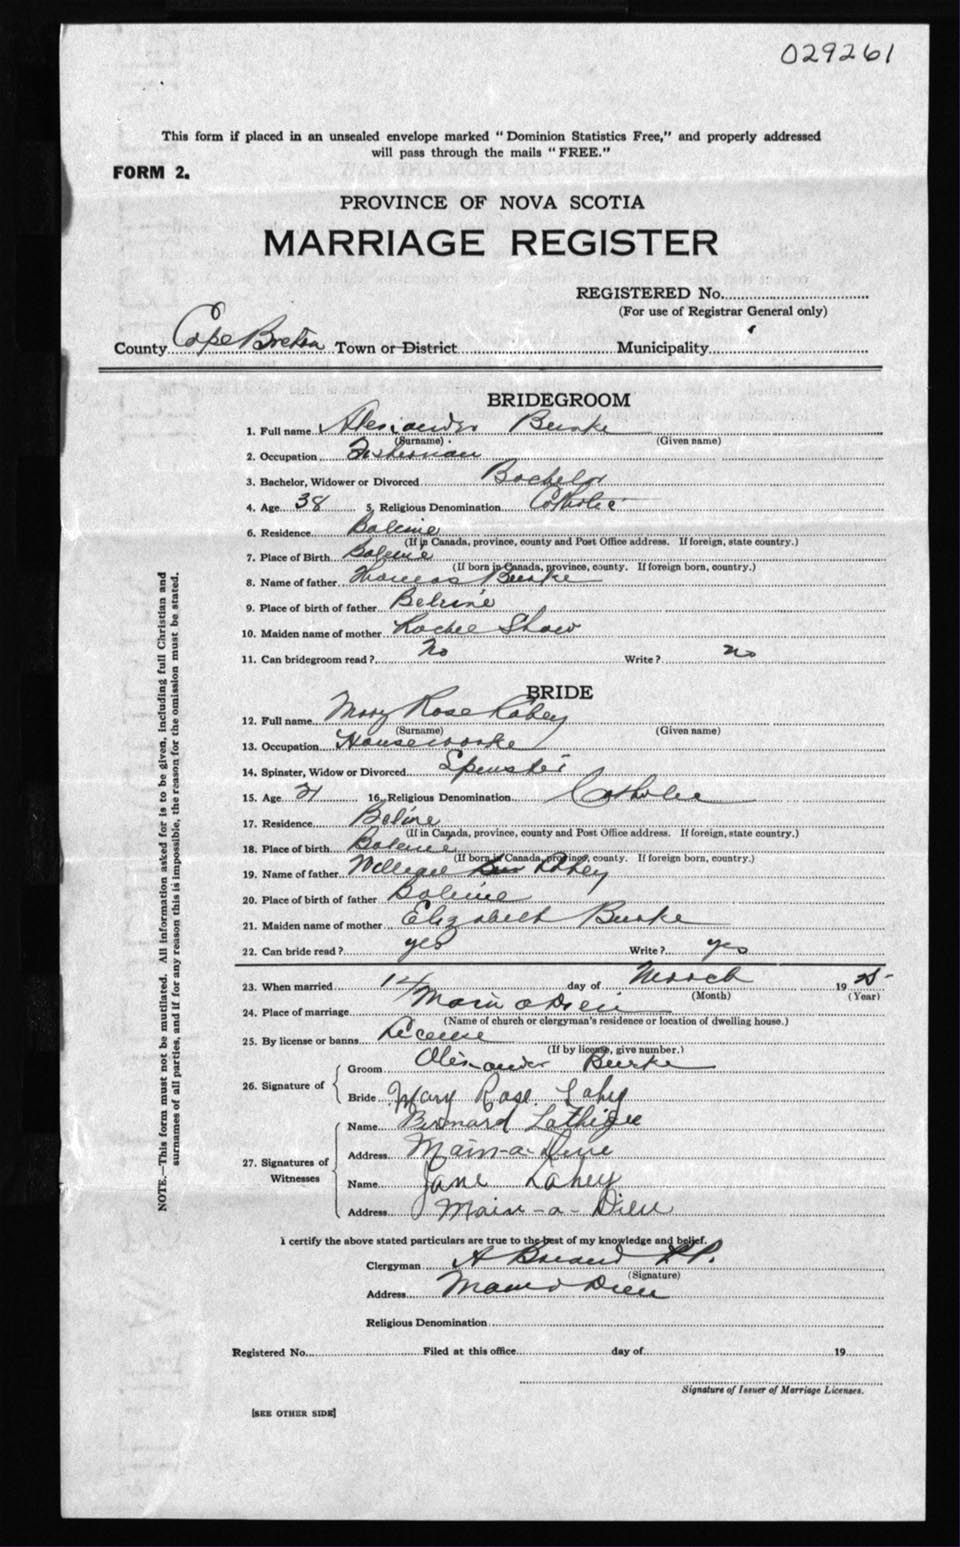 029261
This form if placed in an unsealed envelope marked "Dominion Statistics Free," and properly addressed
will pass through the mails "FREE."
FORM 2.
PROVINCE OF NOVA SCOTIA
MARRIAGE REGISTER
REGISTERED No.
(For use of Registrar General only)
County Cape Breton Town or District Municipality
BRIDEGROOM
1. Full name Alexander Burke
(Surname) (Given name)
2. Occupation Fisherman
3. Bachelor, Widower or Divorced Bachelor
4. Age 38 5. Religious Denomination Catholic
6. Residence Baleine
(If in Canada, province, county and Post Office address. If foreign, state country.)
7. Place of Birth Baleine
(If born in Canada, province, county. If foreign born, country.)
8. Name of father Thomas Burke
9. Place of birth of father Beleine
10. Maiden name of mother Rachel Shaw
11. Can bridegroom read? No Write? no
BRIDE
12. Full name Mary Rose Lahey
(Surname) (Given name)
13. Occupation Houseworke
14. Spinster, Widow or Divorced Spinster
15. Age 21 16. Religious Denomination Catholic
17. Residence Beline
(If in Canada, province, county and Post Office address. If foreign, state country.)
18. Place of birth Baleine
(If born in Canada, province, county. If foreign born, country.)
19. Name of father William Lahey
20. Place of birth of father Baleine
21. Maiden name of mother Elizabeth Burke
22. Can bride read? yes Write? yes
23. When married 14 day of March 19 25
(Month) (Year)
24. Place of marriage Main a Dieu
(Name of church or clergyman's residence or location of dwelling house.)
25. By license or banns License
(If by license, give number.)
26. Signature of
Groom Alexander Burke
Bride Mary Rose Lahy
27. Signatures of Witnesses
Name Bernard Lathigee
Address Main-a-Dieu
Name Jane Lahey
Address Main-a-Dieu
I certify the above stated particulars are true to the best of my knowledge and belief.
Clergyman A P.P.
(Signature)
Address Main a Dieu
Religious Denomination
Registered No. Filed at this office day of 19
Signature of Issuer of Marriage Licenses.
[SEE OTHER SIDE]
NOTE.—This form must not be mutilated. All information asked for is to be given, including full Christian and
surnames of all parties, and if for any reason this is impossible, the reason for the omission must be stated.